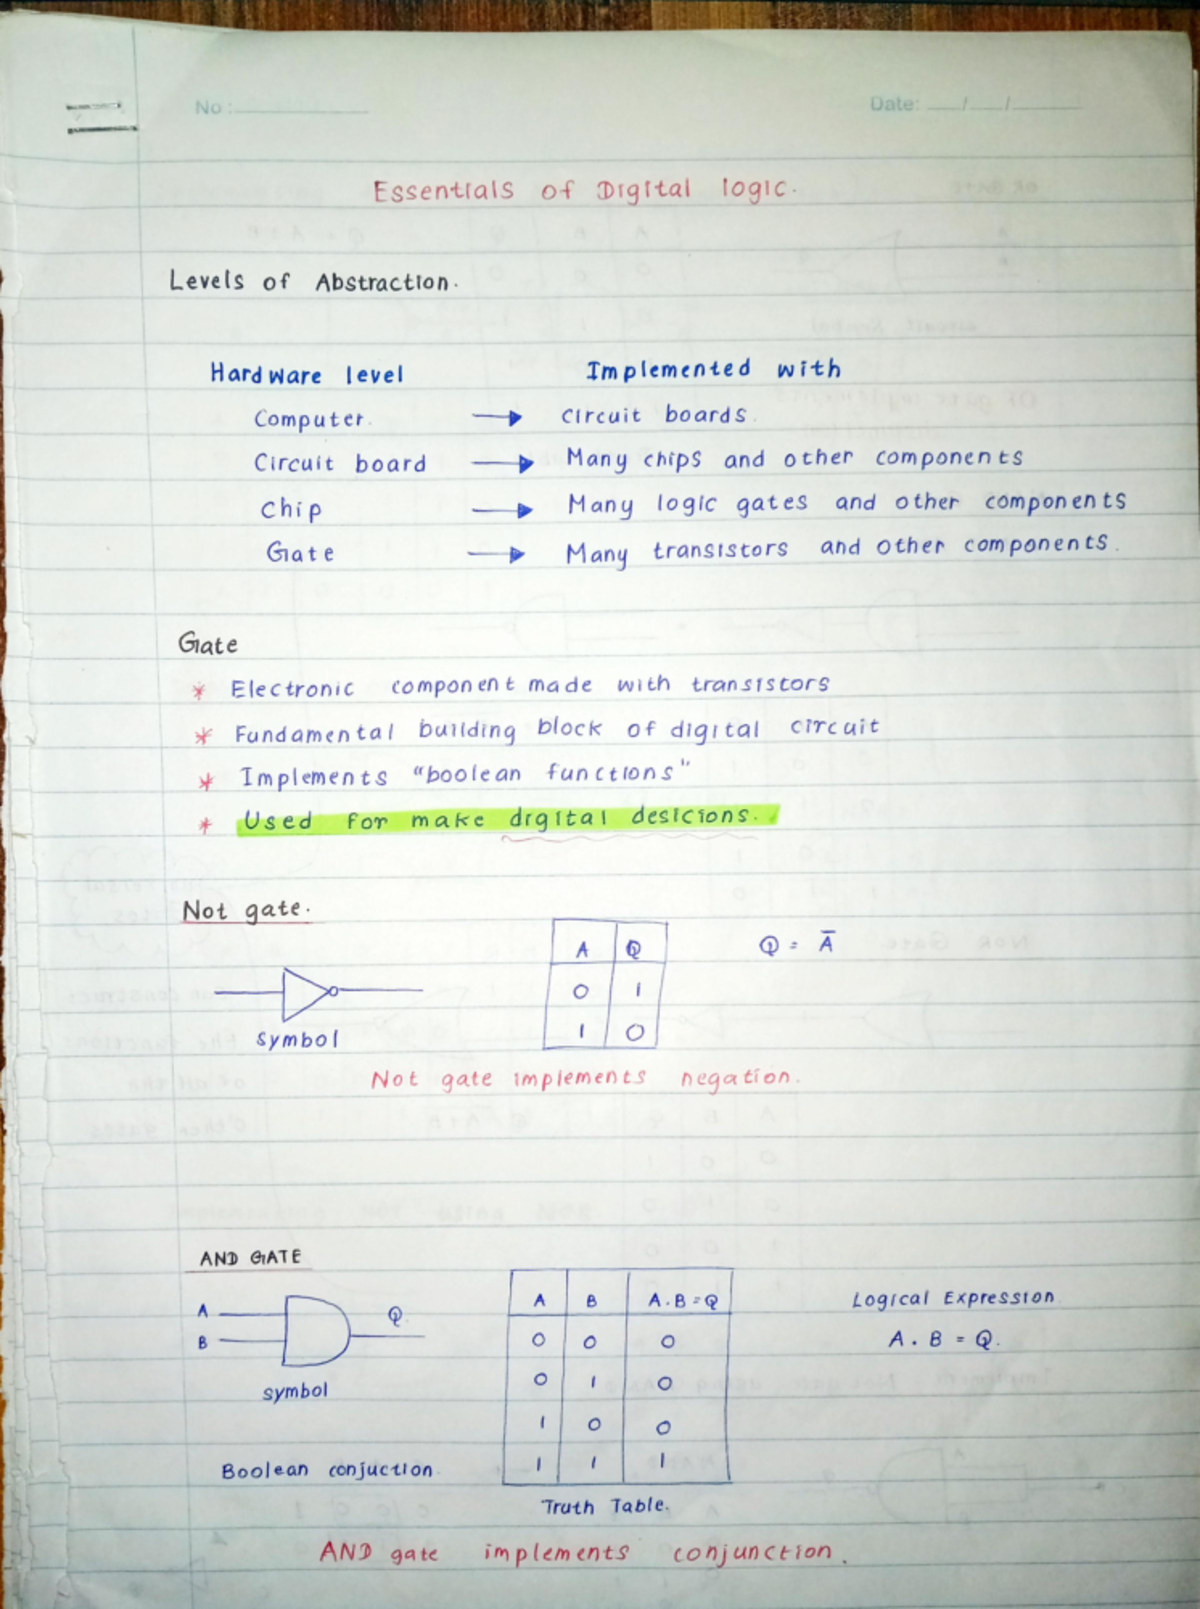 No :
Date: __/__/____
Essentials of Digital logic.
Levels of Abstraction.
Hardware level Implemented with
Computer. → circuit boards.
Circuit board → Many chips and other components
Chip → Many logic gates and other components
Gate → Many transistors and other components.
Gate
* Electronic component made with transistors
* Fundamental building block of digital circuit
* Implements "boolean functions"
* Used for make digital desicions.
Not gate.
A Q Q = A̅
0 1
1 0
symbol
Not gate implements negation.
AND GATE
A B A.B=Q Logical Expression
A Q.
B
0 0 0 A . B = Q.
0 1 0
symbol
1 0 0
1 1 1
Boolean conjuction.
Truth Table.
AND gate implements conjunction.